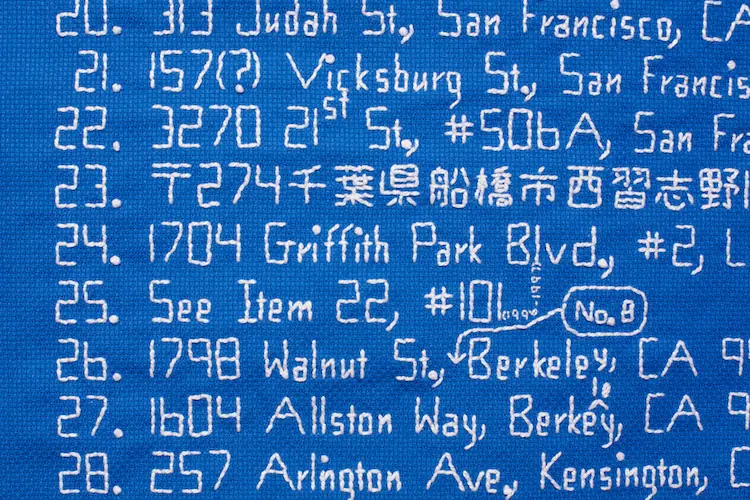 20. 313 Judah St., San Francisco, CA
21. 157(?) Vicksburg St., San Francis
22. 3270 21st St., #506A, San Fra
23. 〒274千葉県船橋市西習志野
24. 1704 Griffith Park Blvd., #2, L
25. See Item 22, #101
No. 8
26. 1798 Walnut St., Berkeley, CA 9
le
27. 1604 Allston Way, Berkey, CA 9
28. 257 Arlington Ave., Kensington, C